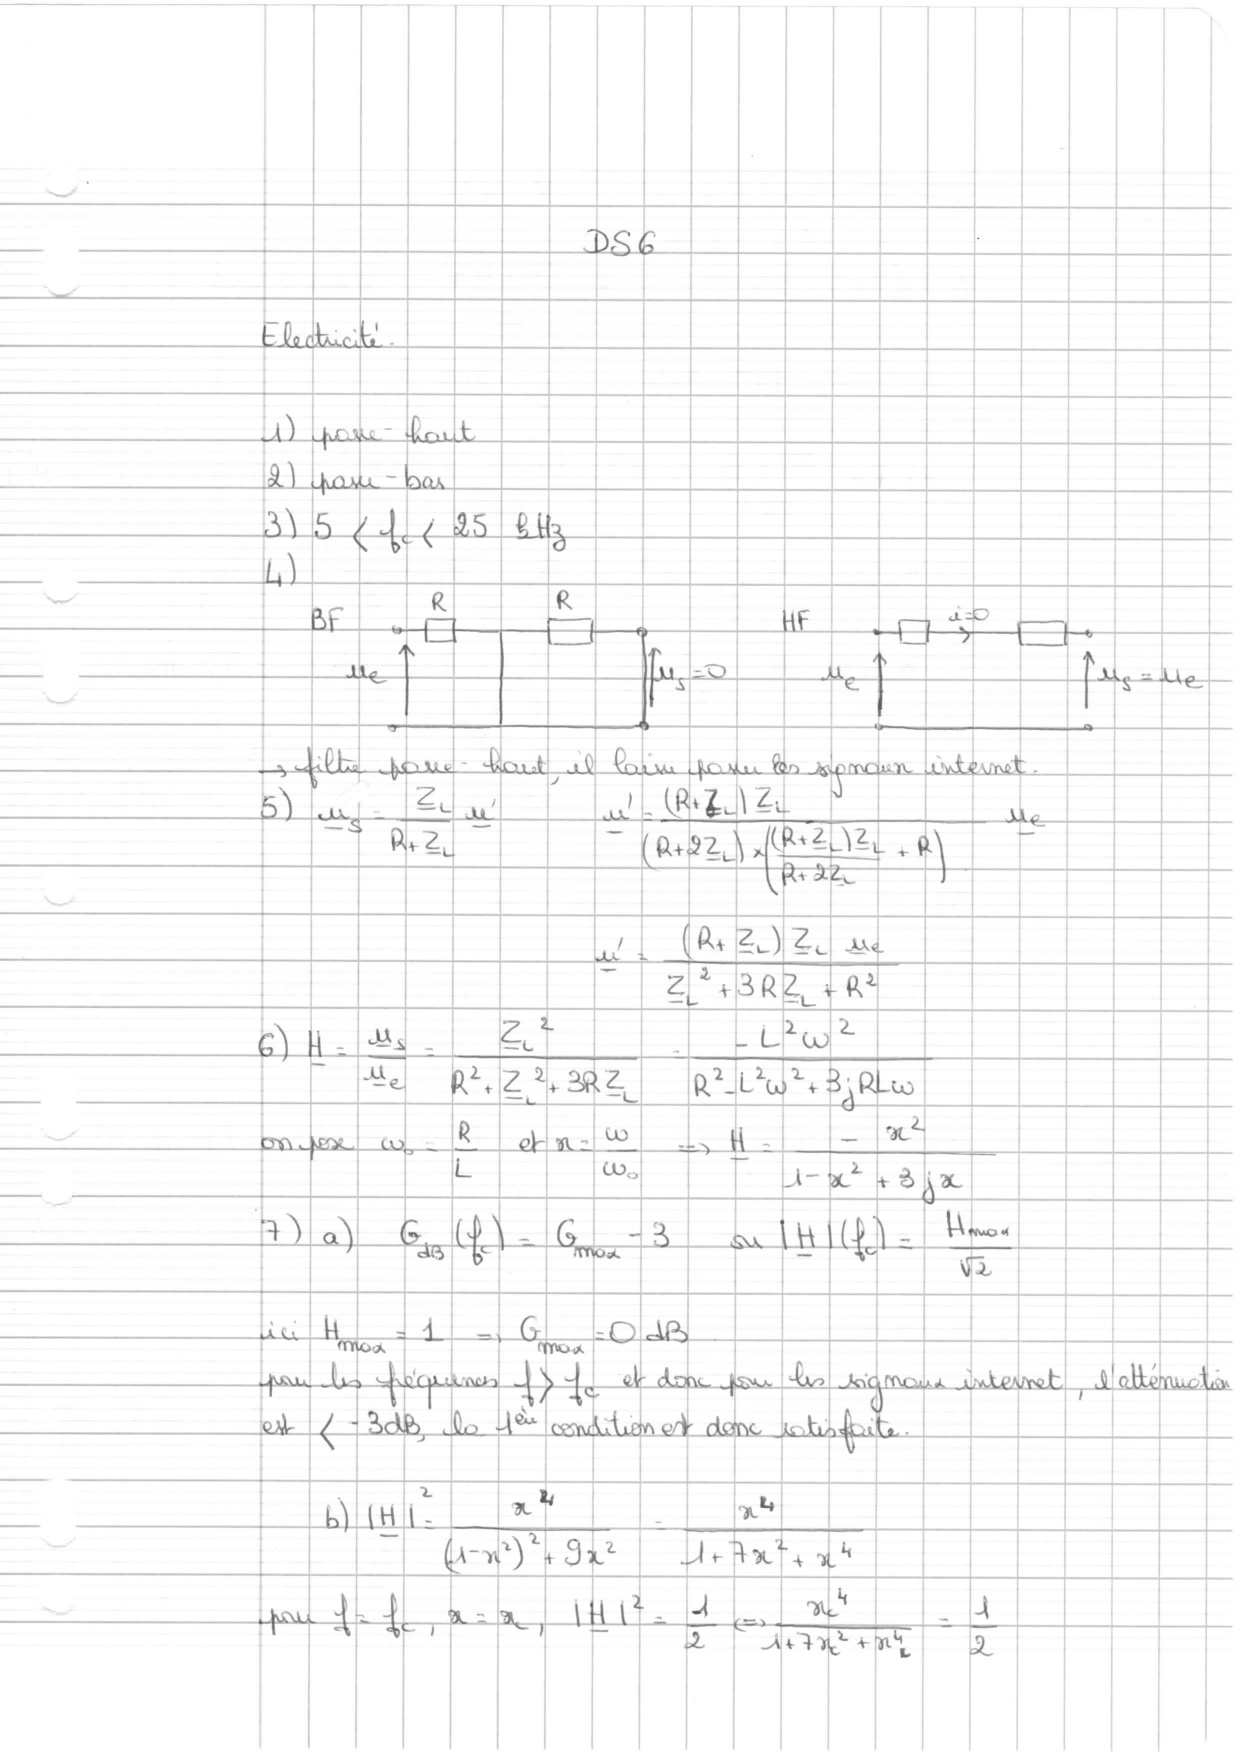 DS6
Electricité.
1) passe-haut
2) passe-bas
3) 5 < fc < 25 kHz
4)
BF R R ue us=0 HF i=0 ue us = ue
→ filtre passe-haut, il laisse passer les signaux internet.
5) us = ZL/(R+ZL) u' u' = (R+ZL)ZL / ((R+2ZL) × ((R+ZL)ZL/(R+2ZL) + R)) ue
u' = (R+ZL) ZL ue / (ZL² + 3RZL + R²)
6) H = us/ue = ZL²/(R²+ZL²+3RZL) = -L²ω²/(R²-L²ω²+3jRLω)
on pose ω₀ = R/L et x = ω/ω₀ => H = -x²/(1-x²+3jx)
7) a) GdB(fc) = Gmax - 3 ou |H|(fc) = Hmax/√2
ici Hmax = 1 => Gmax = 0 dB
pour les fréquences f > fc et donc pour les signaux internet, l'atténuation
est < -3dB, la 1ère condition est donc satisfaite.
b) |H|² = x⁴/((1-x²)²+9x²) = x⁴/(1+7x²+x⁴)
pour f = fc, x = x, |H|² = 1/2 <=> xc⁴/(1+7xc²+xc⁴) = 1/2